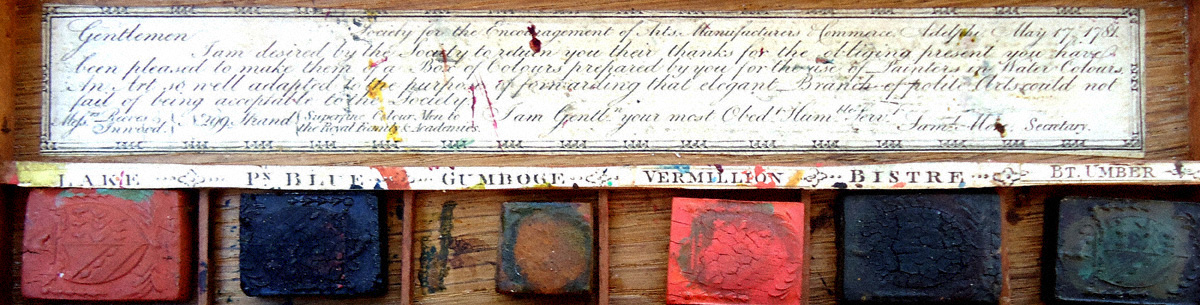 Gentlemen Society for the Encouragement of Arts, Manufacturers & Commerce, Adelphi May 17, 1781.
I am desired by the Society to return you their thanks for the obliging present you have
been pleased to make them of a Box of Colours prepared by you for the use of Painters in Water Colours,
An Art so well adapted to the purpose of forwarding that elegant Branch of polite Arts could not
fail of being acceptable to the Society
Mess.rs Reeves & Inwood. No. 299 Strand Superfine Colour Men to the Royal Family & Academies. I am Gentln. your most Obedt. Humble Servt. Saml. More, Secretary.
LAKE PN BLUE GUMBOGE VERMILLION BISTRE BT. UMBER